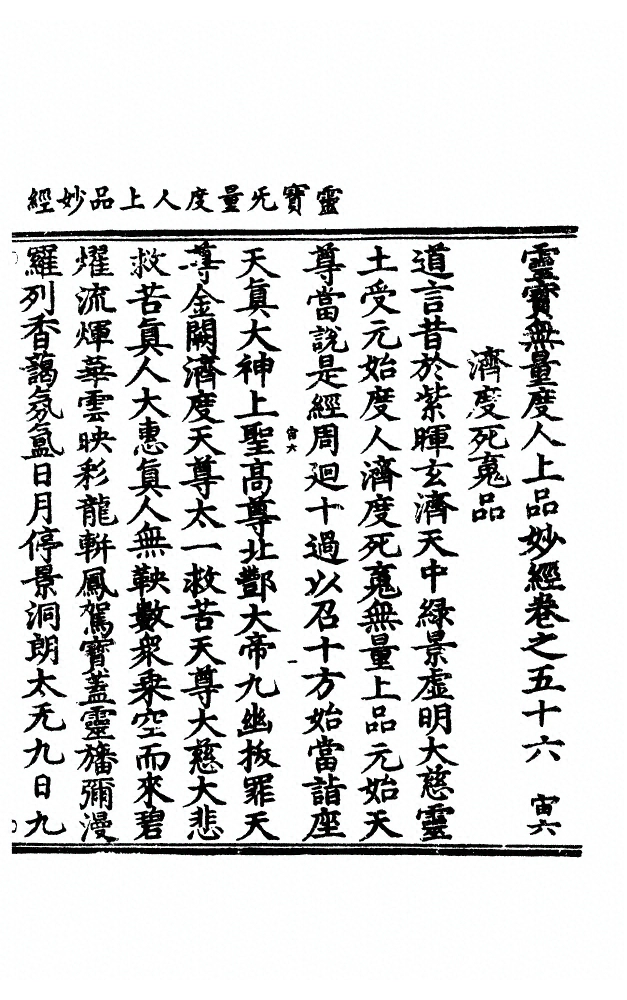 靈寶旡量度人上品妙經
靈寶無量度人上品妙經卷之五十六　宙六
濟度死䰟品
道言昔於紫暉玄濟天中綠景虛明大慈靈
土受元始度人濟度死䰟無量上品元始天
尊當說是經周廻十過以召十方始當詣座
宙六　一
天真大神上聖高尊北酆大帝九幽拔罪天
尊金闕濟度天尊太一救苦天尊大慈大悲
救苦真人大惠真人無鞅數衆乗空而來碧
燿流煇華雲映彩龍輧鳳駕寶蓋靈旛彌漫
羅列香藹氛氳日月停景洞朗太旡九日九